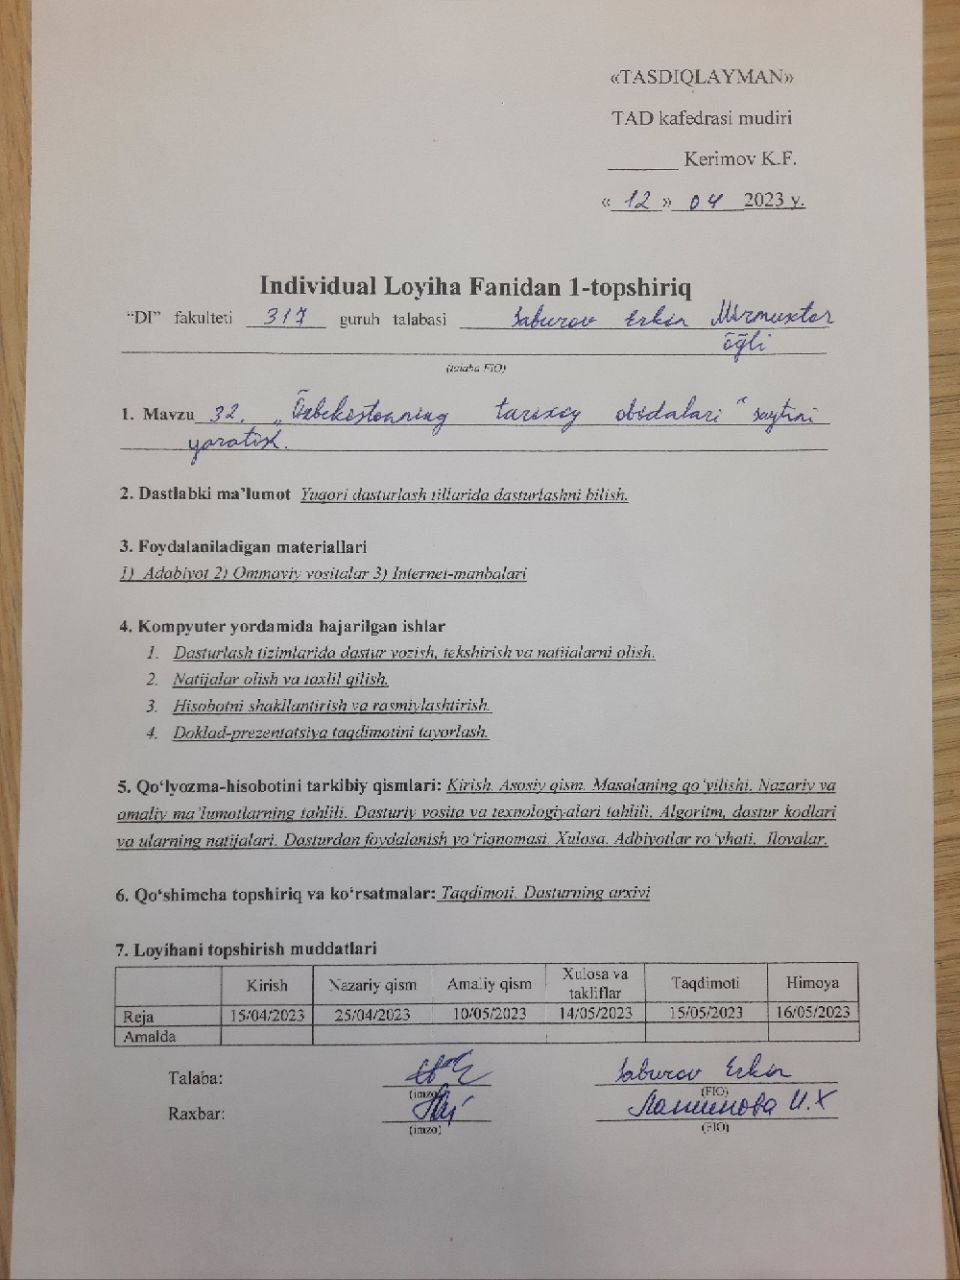 «TASDIQLAYMAN»
TAD kafedrasi mudiri
_______ Kerimov K.F.
« 12 » 04 2023 y.
Individual Loyiha Fanidan 1-topshiriq
“DI” fakulteti 317 guruh talabasi Saburov Erkin Mirmuxtor
oʻgʻli
(talaba FIO)
1. Mavzu 32. „Oʻzbekistonning tarixiy obidalari“ saytini
yaratish.
2. Dastlabki ma’lumot Yuqori dasturlash tillarida dasturlashni bilish.
3. Foydalaniladigan materiallari
1) Adabiyot 2) Ommaviy vositalar 3) Internet-manbalari
4. Kompyuter yordamida bajarilgan ishlar
1. Dasturlash tizimlarida dastur yozish, tekshirish va natijalarni olish.
2. Natijalar olish va taxlil qilish.
3. Hisobotni shakllantirish va rasmiylashtirish.
4. Doklad-prezentatsiya taqdimotini tayorlash.
5. Qo‘lyozma-hisobotini tarkibiy qismlari: Kirish. Asosiy qism. Masalaning qo‘yilishi. Nazariy va
amaliy ma’lumotlarning tahlili. Dasturiy vosita va texnologiyalari tahlili. Algoritm, dastur kodlari
va ularning natijalari. Dasturdan foydalanish yo‘riqnomasi. Xulosa. Adbiyotlar ro‘yhati. Ilovalar.
6. Qo‘shimcha topshiriq va ko‘rsatmalar: Taqdimoti. Dasturning arxivi
7. Loyihani topshirish muddatlari
Kirish Nazariy qism Amaliy qism Xulosa va takliflar Taqdimoti Himoya
Reja 15/04/2023 25/04/2023 10/05/2023 14/05/2023 15/05/2023 16/05/2023
Amalda
Talaba: Saburov Erkin
(imzo) (FIO)
Raxbar: И.Х
(imzo) (FIO)